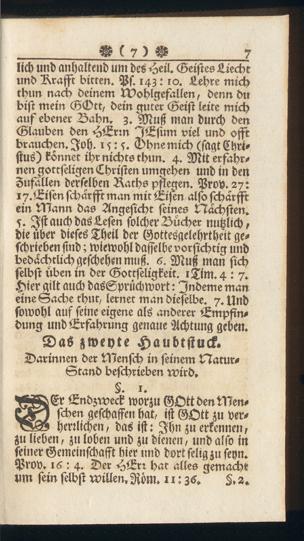 (7) 7
lich und anhaltend um des Heil. Geistes Liecht
und Krafft bitten. Ps. 143: 10. Lehre mich
thun nach deinem Wohlgefallen, denn du
bist mein GOtt, dein guter Geist leite mich
auf ebener Bahn. 3. Muß man durch den
Glauben den HErrn JEsum viel und offt
brauchen. Joh. 15: 5. Ohne mich (sagt Chri-
stus) könnet ihr nichts thun. 4. Mit erfahr-
nen gottseligen Christen umgehen und in den
Zufällen derselben Raths pflegen. Prov. 27:
17. Eisen schärfft man mit Eisen also schärfft
ein Mann das Angesicht seines Nächsten.
5. Ist auch das Lesen solcher Bücher nutzlich,
die über dieses Theil der Gottesgelehrtheit ge-
schrieben sind: wiewohl dasselbe vorsichtig und
bedächtlich geschehen muß. 6. Muß man sich
selbst üben in der Gottseligkeit. 1 Tim. 4: 7.
Hier gilt auch das Sprüchwort: Indeme man
eine Sache thut, lernet man dieselbe. 7. Und
sowohl auf seine eigene als anderer Empfin-
dung und Erfahrung genaue Achtung geben.
Das zweyte Haubtstuck.
Darinnen der Mensch in seinem Natur-
Stand beschrieben wird.
§. 1.
DEr Endzweck worzu GOtt den Men-
schen geschaffen hat, ist GOtt zu ver-
herrlichen, das ist: Ihn zu erkennen,
zu lieben, zu loben und zu dienen, und also in
seiner Gemeinschafft hier und dort selig zu seyn.
Prov. 16: 4. Der HErr hat alles gemacht
um sein selbst willen. Röm. 11: 36. §. 2.